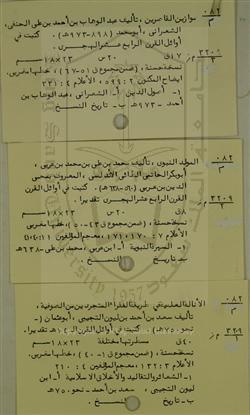 ٠٨٢
م
موازين القاصرين، تأليف عبدالوهاب بن أحمد بن علي الحنفي،
الشعراني، أبو محمد (٨٩٨-٩٧٣هـ). كتبت في
أوائل القرن الرابع عشر الهجري.
٣٢٠٩
م ز
١٧ ق ٢٠ س ٢٣×١٨ سم
نسخة حسنة، (ضمن مجموع ق ٥١-٦٧)، خطها مغربي.
ايضاح المكنون ٢: ٥٩٤، الاعلام ٤: ٣٣١
١- أصول الدين أ- الشعراني، عبدالوهاب بن
أحمد - ٩٧٣هـ ب- تاريخ النسخ
٠٨٢
م
المولد النبوي، تأليف محمد بن علي بن محمد بن عربي،
أبوبكر الحاتمي الطائي الأندلسي، المعروف بمحيي
الدين بن عربي (٥٦٠-٦٣٨هـ). كتبت في أوائل القرن
الرابع عشر الهجري تقديرا.
٣٢٠٩
م ز
٨ ق ٢٠ س ٢٣×١٨ سم
نسخة حسنة، (ضمن مجموع ق ٤٣-٥٠)، خطها مغربي.
الأعلام ٧: ١٧٠، ١٧١ معجم المؤلفين ١١: ٤٠
١- السيرة النبوية أ- ابن عربي، محمد بن علي - ٦٣٨هـ
ب- تاريخ النسخ
٠٨٢
م
الانالة العلمية في طريقة الفقراء المتجردين من الصوفية،
تأليف سعد بن أحمد بن ليون التجيبي، أبو عثمان (-
نحو ٧٥٠هـ). كتبت في أوائل القرن الـ ١٤هـ تقديرا.
٣٢٠٩
م ز
٤٠ ق مسطرتها مختلفة ٢٣×١٨ سم
نسخة حسنة، (ضمن مجموع ق ١-٤٠)، خطها مغربي.
الاعلام ٣: ١٣٢، معجم المؤلفين ٤: ٢١٠
١- الشعائر والتقاليد والاخلاق الاسلامية أ- ابن
ليون التجيبي، سعد بن أحمد - نحو ٧٥٠هـ
ب- تاريخ النسخ.
1957